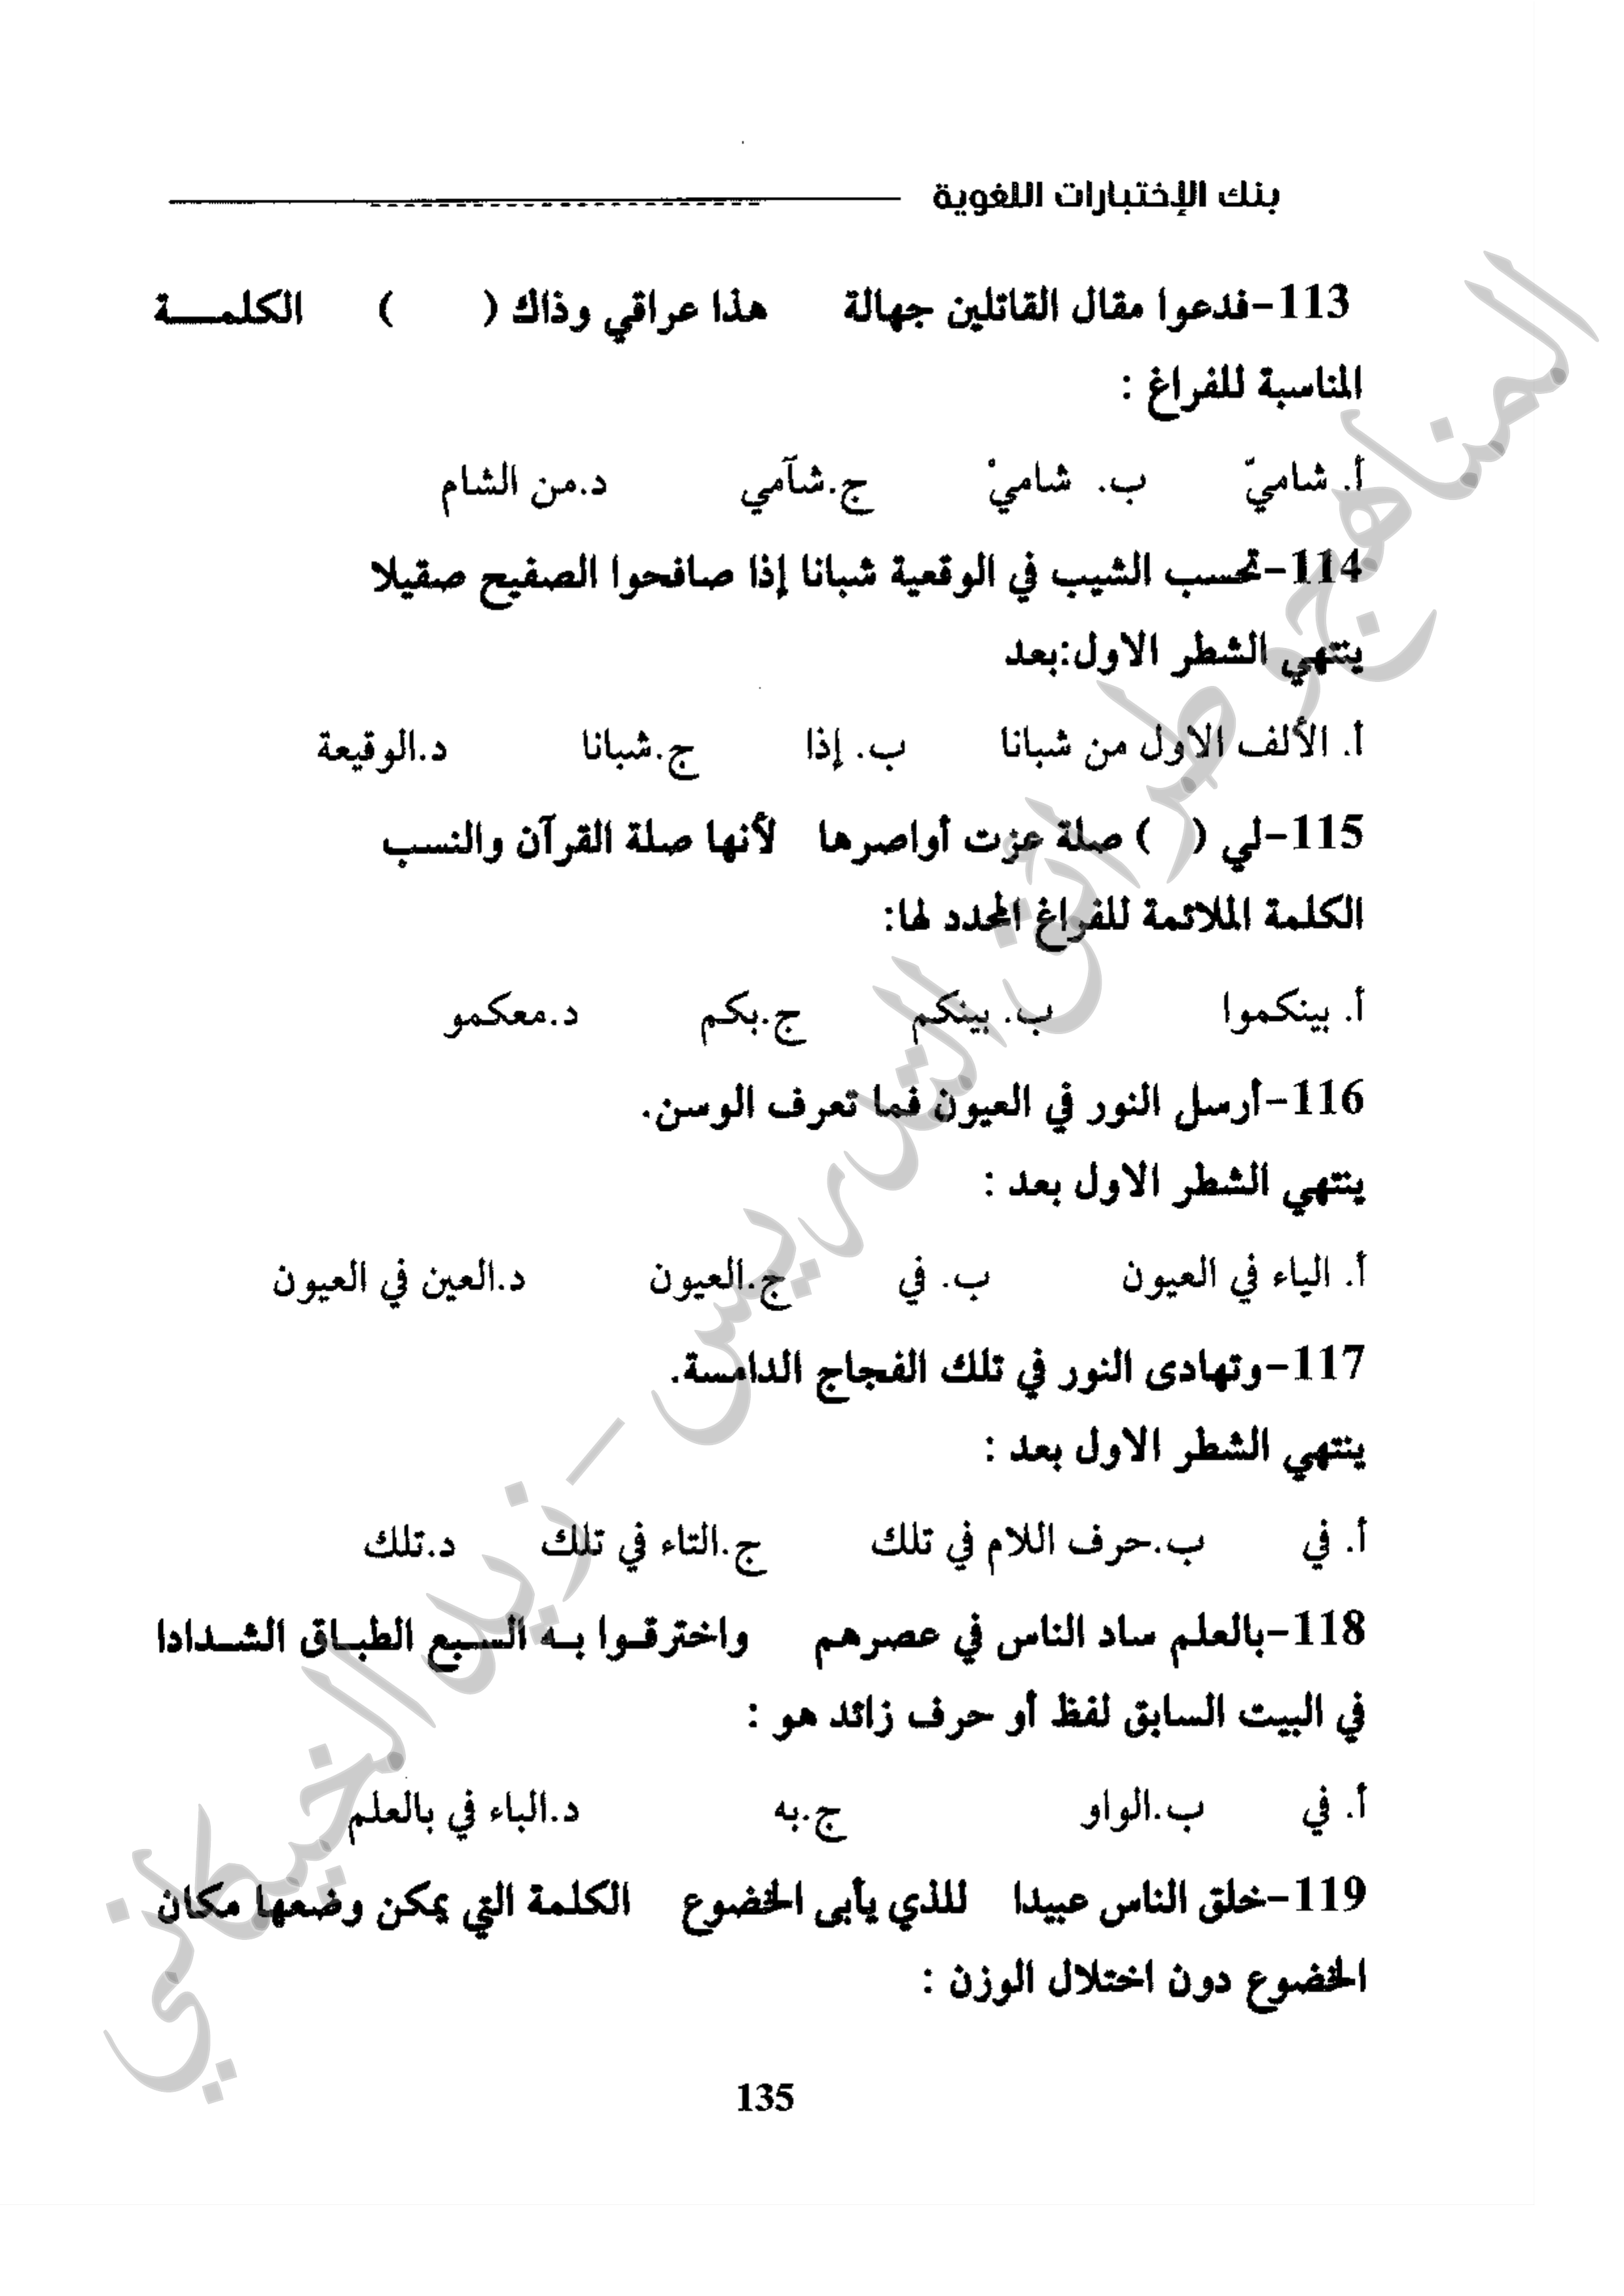 بنك الإختبارات اللغوية
113-فدعوا مقال القاتلين جهالة هذا عراقي وذاك ( ) الكلمـــة
المناسبة للفراغ :
أ. شاميّ ب. شاميْ ج.شآمي د.من الشام
114-تحسب الشيب في الوقعية شبانا إذا صافحوا الصفيح صقيلا
ينتهي الشطر الاول:بعد
أ. الألف الاول من شبانا ب. إذا ج.شبانا د.الوقيعة
115-لي ( ) صلة عزت أواصرها لأنها صلة القرآن والنسب
الكلمة الملائمة للفراغ المحدد لها:
أ. بينكموا ب. بينكم ج.بكم د.معكمو
116-أرسل النور في العيون فما تعرف الوسن.
ينتهي الشطر الاول بعد :
أ. الياء في العيون ب. في ج.العيون د.العين في العيون
117-وتهادى النور في تلك الفجاج الدامسة.
ينتهي الشطر الاول بعد :
أ. في ب.حرف اللام في تلك ج.التاء في تلك د.تلك
118-بالعلم ساد الناس في عصرهم واخترقـوا بـه السـبع الطبـاق الشـدادا
في البيت السابق لفظ أو حرف زائد هو :
أ. في ب.الواو ج.به د.الباء في بالعلم
119-خلق الناس عبيدا للذي يأبى الخضوع الكلمة التي يمكن وضعها مكان
الخضوع دون اختلال الوزن :
135
المناهج وطرائق التدريس - زيد الخيكاني